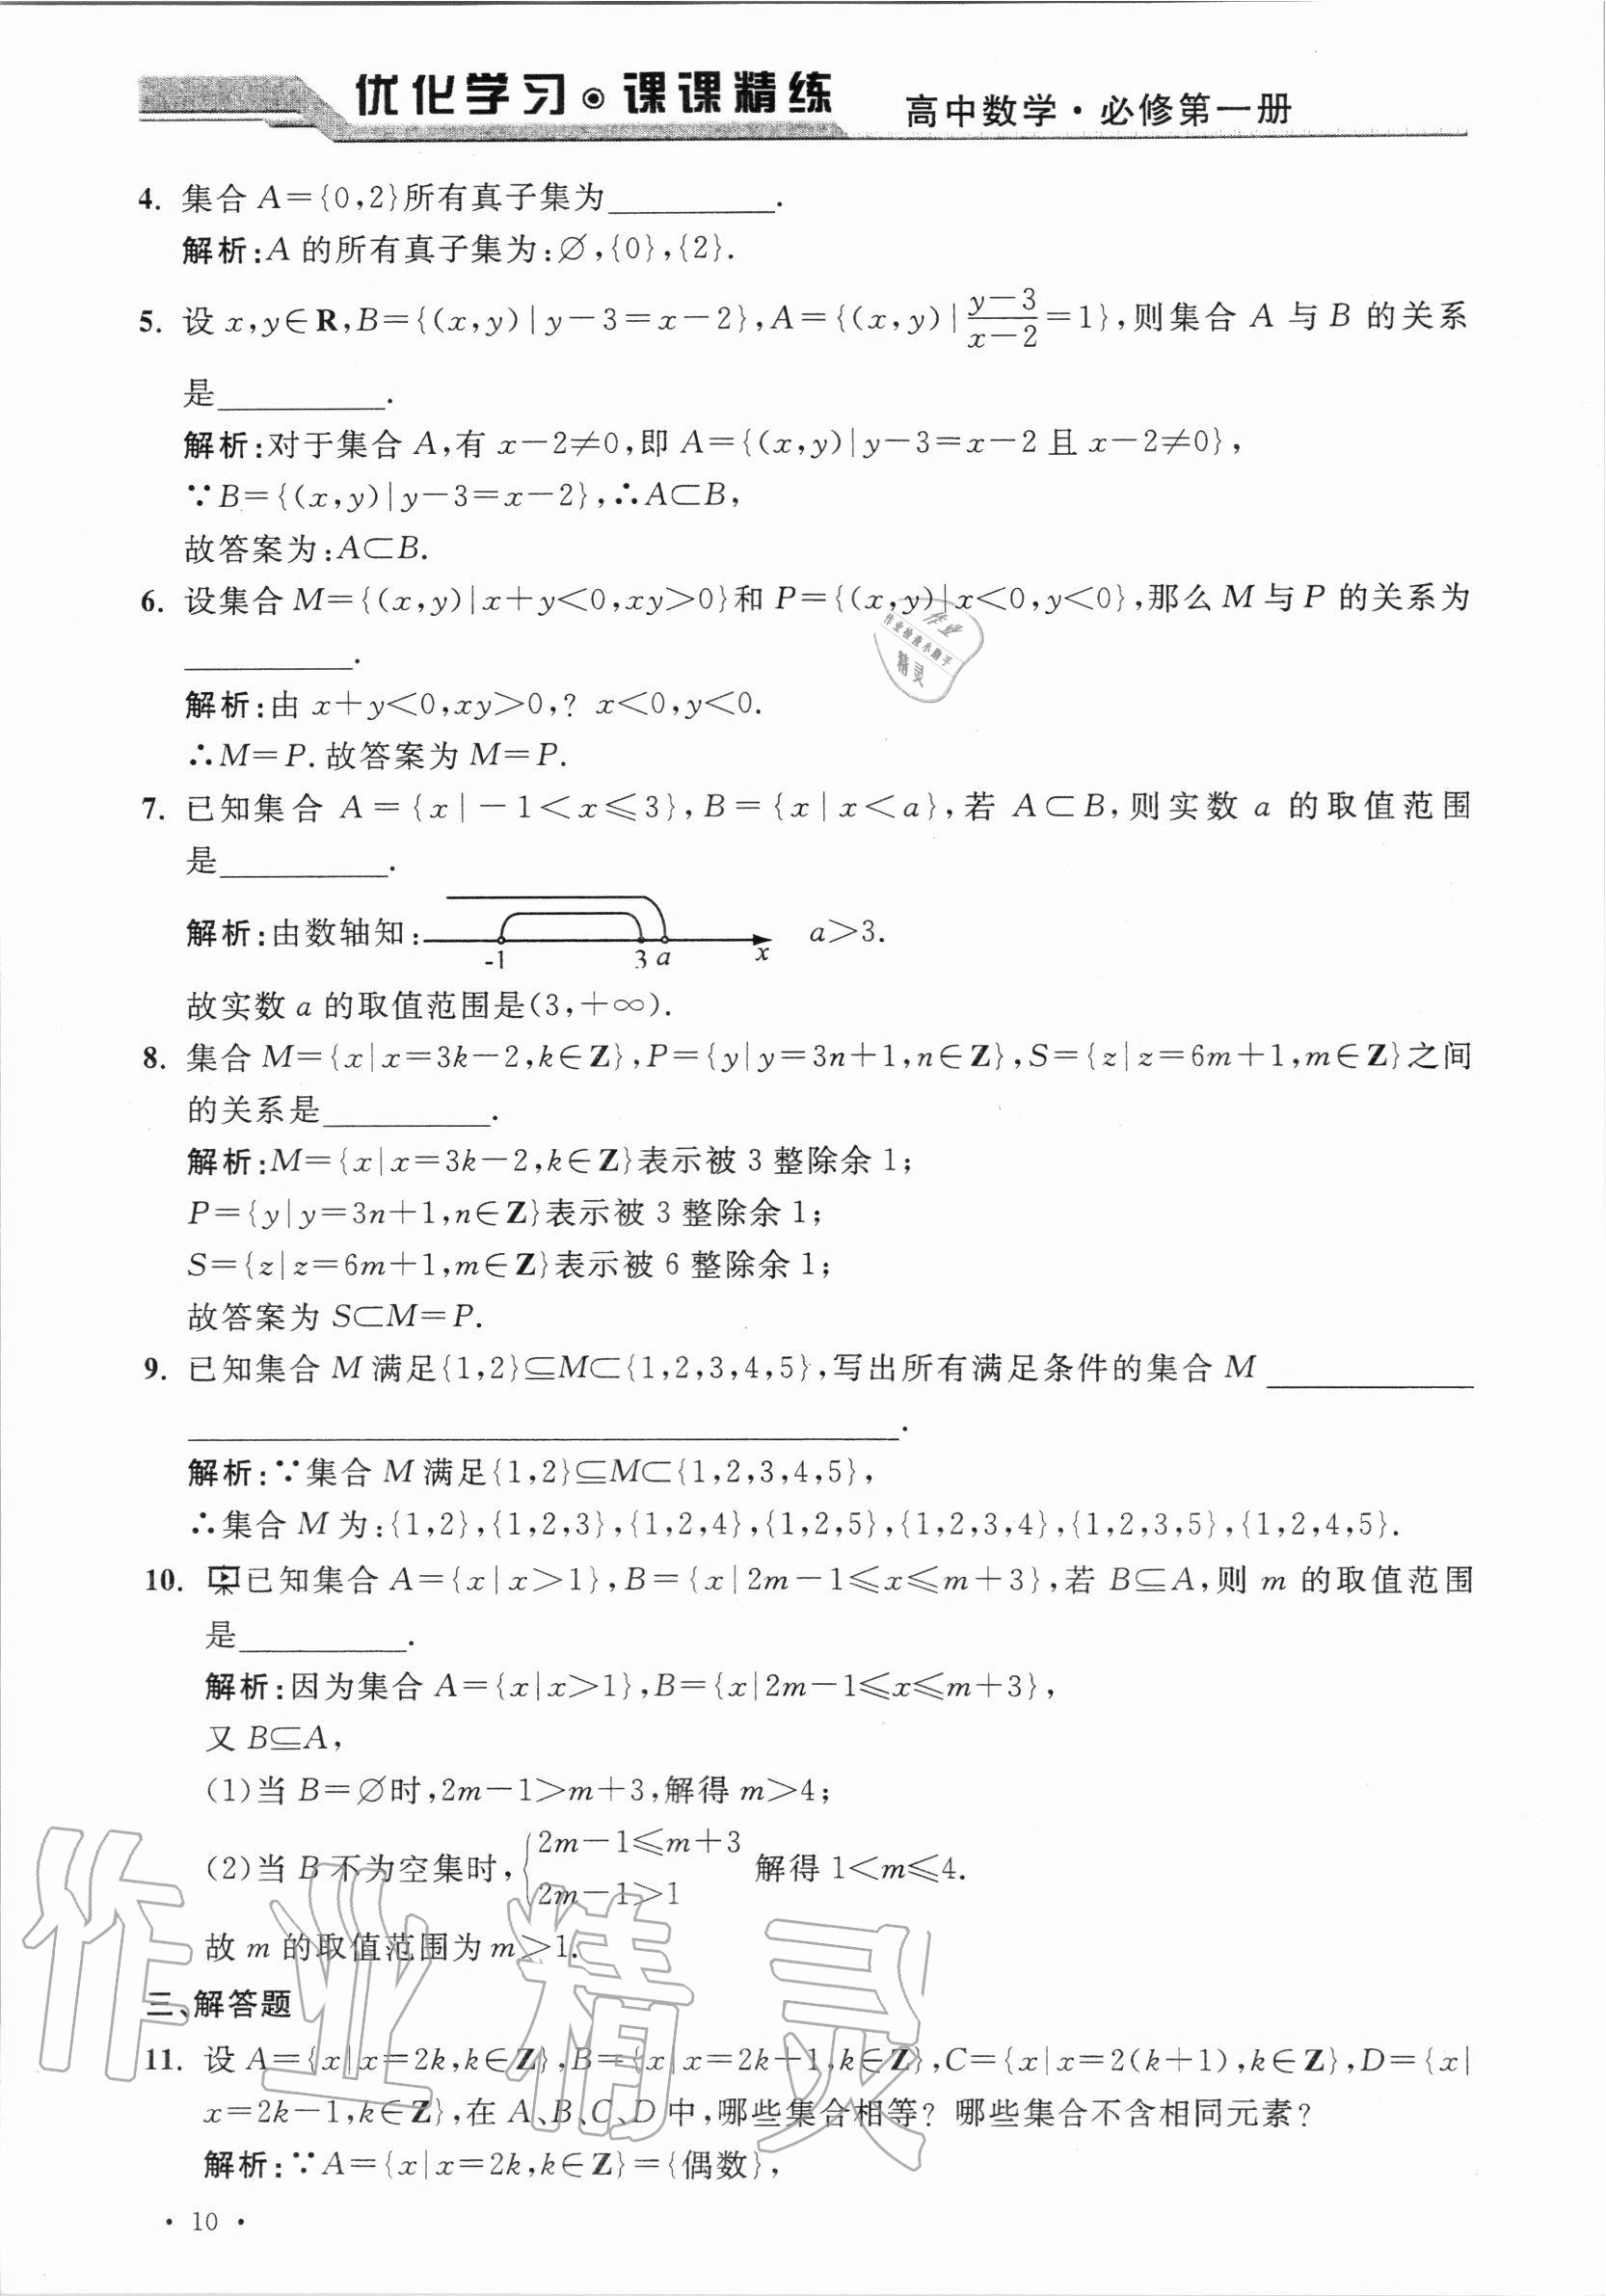 优化学习·课课精练 高中数学·必修第一册
4. 集合 A={0,2}所有真子集为__________.
解析:A 的所有真子集为:∅,{0},{2}.
5. 设 x,y∈R,B={(x,y)|y-3=x-2},A={(x,y)|\frac{y-3}{x-2}=1},则集合 A 与 B 的关系
是__________.
解析:对于集合 A,有 x-2≠0,即 A={(x,y)|y-3=x-2 且 x-2≠0},
∵B={(x,y)|y-3=x-2},∴A⊂B,
故答案为:A⊂B.
6. 设集合 M={(x,y)|x+y<0,xy>0}和 P={(x,y)|x<0,y<0},那么 M 与 P 的关系为
__________.
解析:由 x+y<0,xy>0,? x<0,y<0.
∴M=P.故答案为 M=P.
7. 已知集合 A={x|-1<x≤3},B={x|x<a},若 A⊂B,则实数 a 的取值范围
是__________.
解析:由数轴知: a>3.
-1 3 a x
故实数 a 的取值范围是(3,+∞).
8. 集合 M={x|x=3k-2,k∈Z},P={y|y=3n+1,n∈Z},S={z|z=6m+1,m∈Z}之间
的关系是__________.
解析:M={x|x=3k-2,k∈Z}表示被 3 整除余 1;
P={y|y=3n+1,n∈Z}表示被 3 整除余 1;
S={z|z=6m+1,m∈Z}表示被 6 整除余 1;
故答案为 S⊂M=P.
9. 已知集合 M 满足{1,2}⊆M⊂{1,2,3,4,5},写出所有满足条件的集合 M ____________
__________________________________________.
解析:∵集合 M 满足{1,2}⊆M⊂{1,2,3,4,5},
∴集合 M 为:{1,2},{1,2,3},{1,2,4},{1,2,5},{1,2,3,4},{1,2,3,5},{1,2,4,5}.
10. 已知集合 A={x|x>1},B={x|2m-1≤x≤m+3},若 B⊆A,则 m 的取值范围
是__________.
解析:因为集合 A={x|x>1},B={x|2m-1≤x≤m+3},
又 B⊆A,
(1)当 B=∅时,2m-1>m+3,解得 m>4;
(2)当 B 不为空集时,{2m-1≤m+3 2m-1>1 解得 1<m≤4.
故 m 的取值范围为 m>1.
三、解答题
11. 设 A={x|x=2k,k∈Z},B={x|x=2k+1,k∈Z},C={x|x=2(k+1),k∈Z},D={x|
x=2k-1,k∈Z},在 A、B、C、D 中,哪些集合相等? 哪些集合不含相同元素?
解析:∵A={x|x=2k,k∈Z}={偶数},
· 10 ·
作业
作业检查小助手
精灵
作业精灵